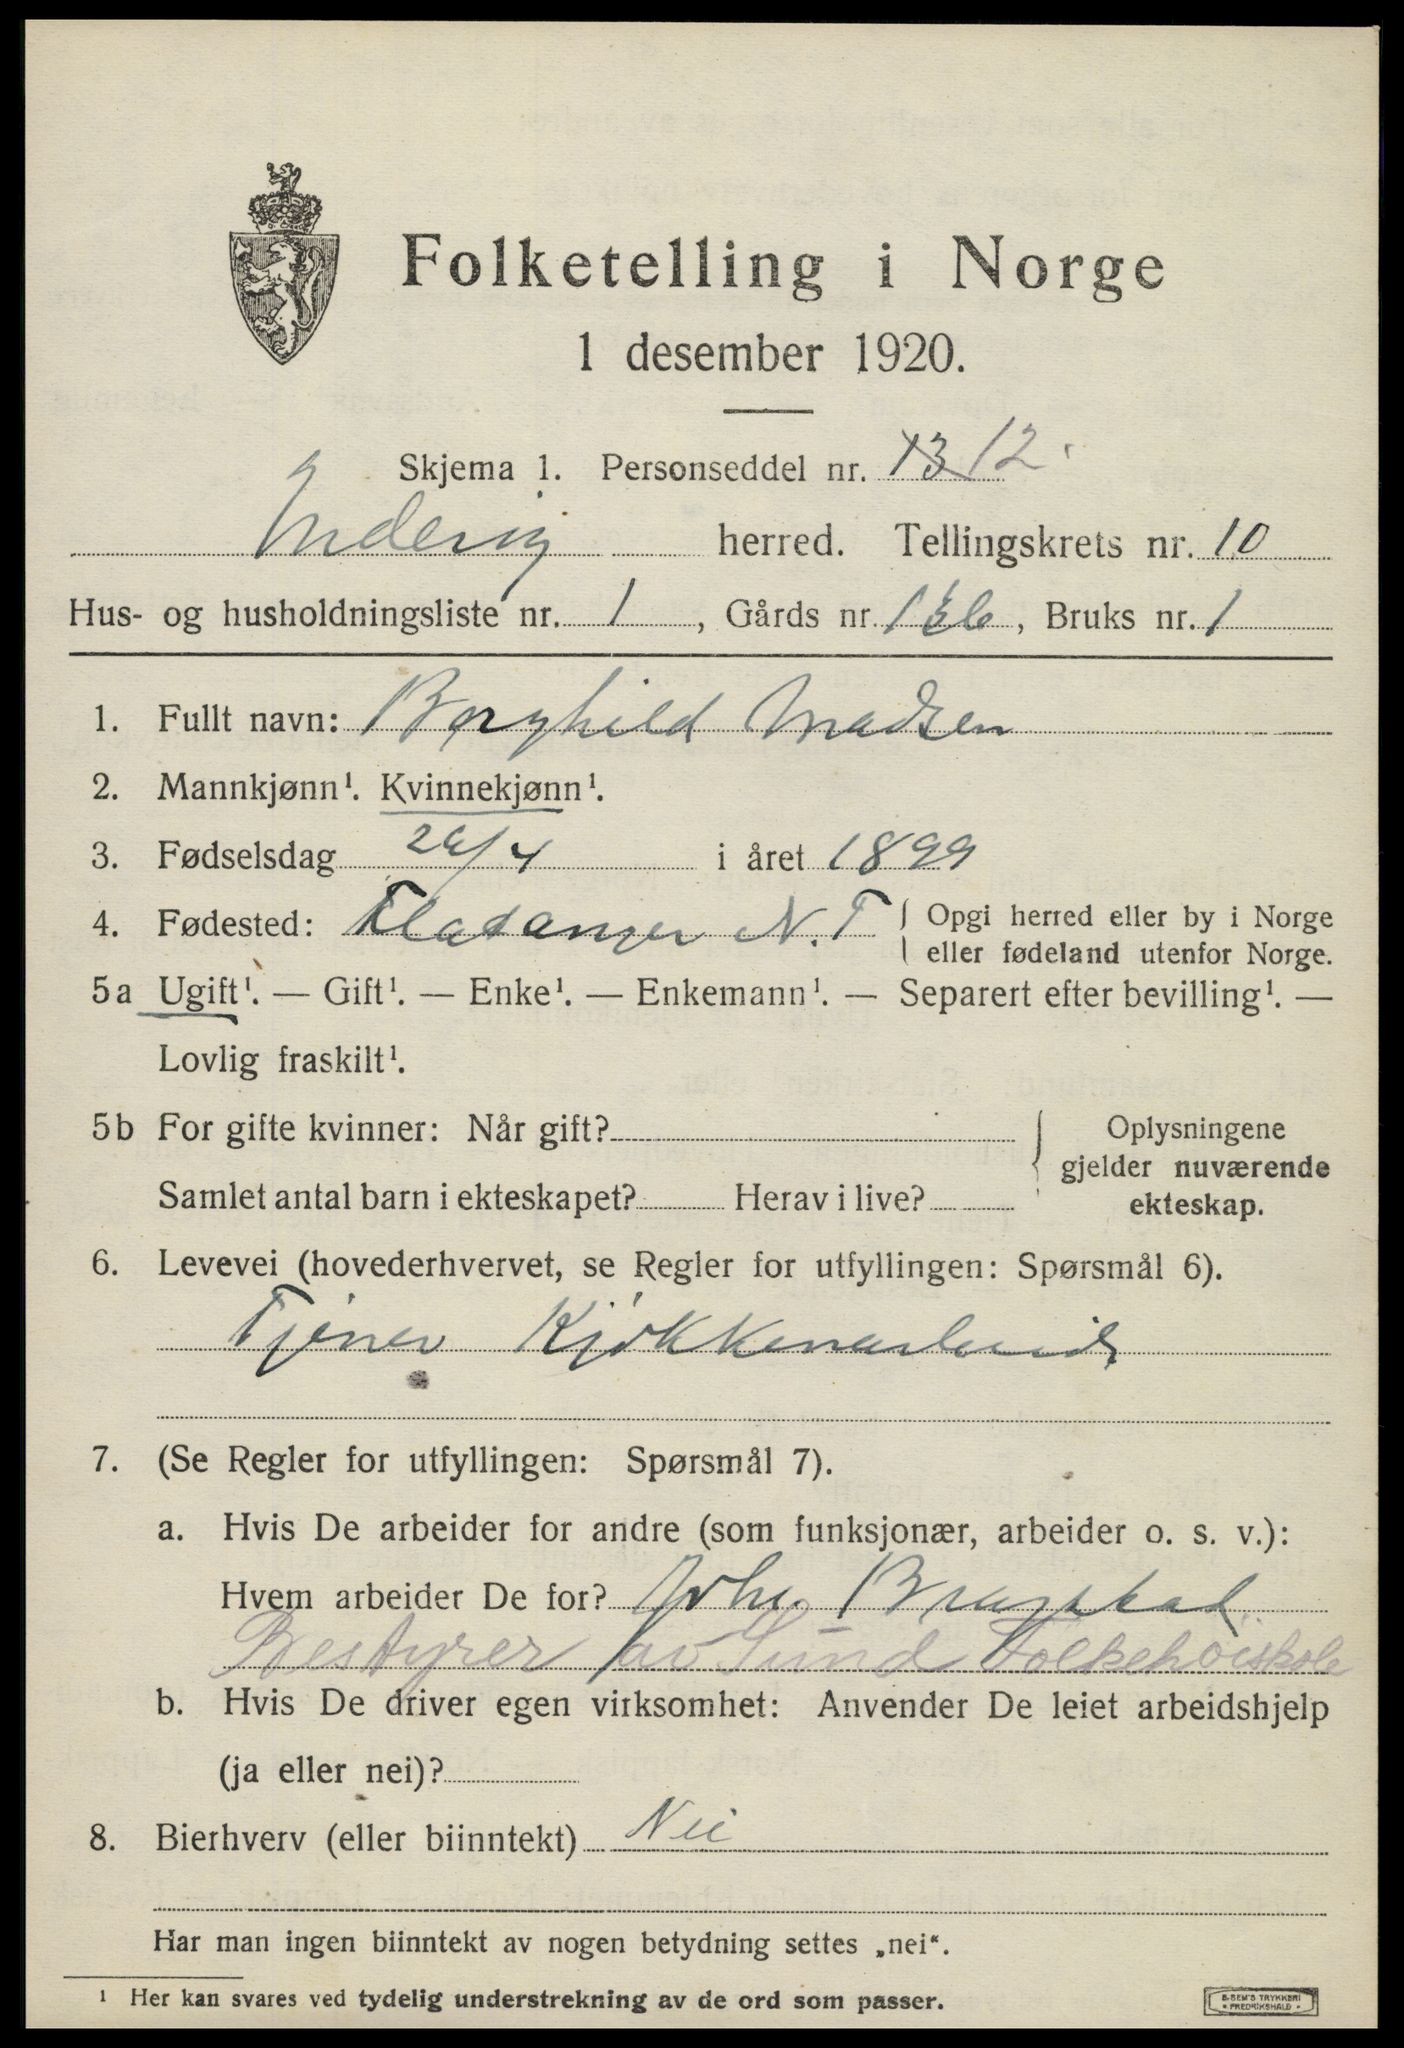 Folketelling i Norge
1 desember 1920.
Skjema 1. Personseddel nr. 13 12.
Inderøy herred. Tellingskrets nr. 10
Hus- og husholdningsliste nr. 1, Gårds nr. 136, Bruks nr. 1
1. Fullt navn: Borghild Madsen
2. Mannkjønn¹. Kvinnekjønn¹.
3. Fødselsdag 26/4 i året 1899
4. Fødested: Flatanger N. T { Opgi herred eller by i Norge
eller fødeland utenfor Norge.
5a Ugift¹. — Gift¹. — Enke¹. — Enkemann¹. — Separert efter bevilling¹. —
Lovlig fraskilt¹.
5b For gifte kvinner: Når gift? { Oplysningene
gjelder nuværende
Samlet antal barn i ekteskapet? Herav i live? ekteskap.
6. Levevei (hovederhvervet, se Regler for utfyllingen: Spørsmål 6).
Tjener Kjøkkenarbeide
7. (Se Regler for utfyllingen: Spørsmål 7).
a. Hvis De arbeider for andre (som funksjonær, arbeider o. s. v.):
Hvem arbeider De for? Johs.
Bestyrer av Sund Folkehøiskole
b. Hvis De driver egen virksomhet: Anvender De leiet arbeidshjelp
(ja eller nei)?
8. Bierhverv (eller biinntekt) Nei
Har man ingen biinntekt av nogen betydning settes „nei“.
¹ Her kan svares ved tydelig understrekning av de ord som passer.
E. SEM'S TRYKKERI
FREDRIKSHALD